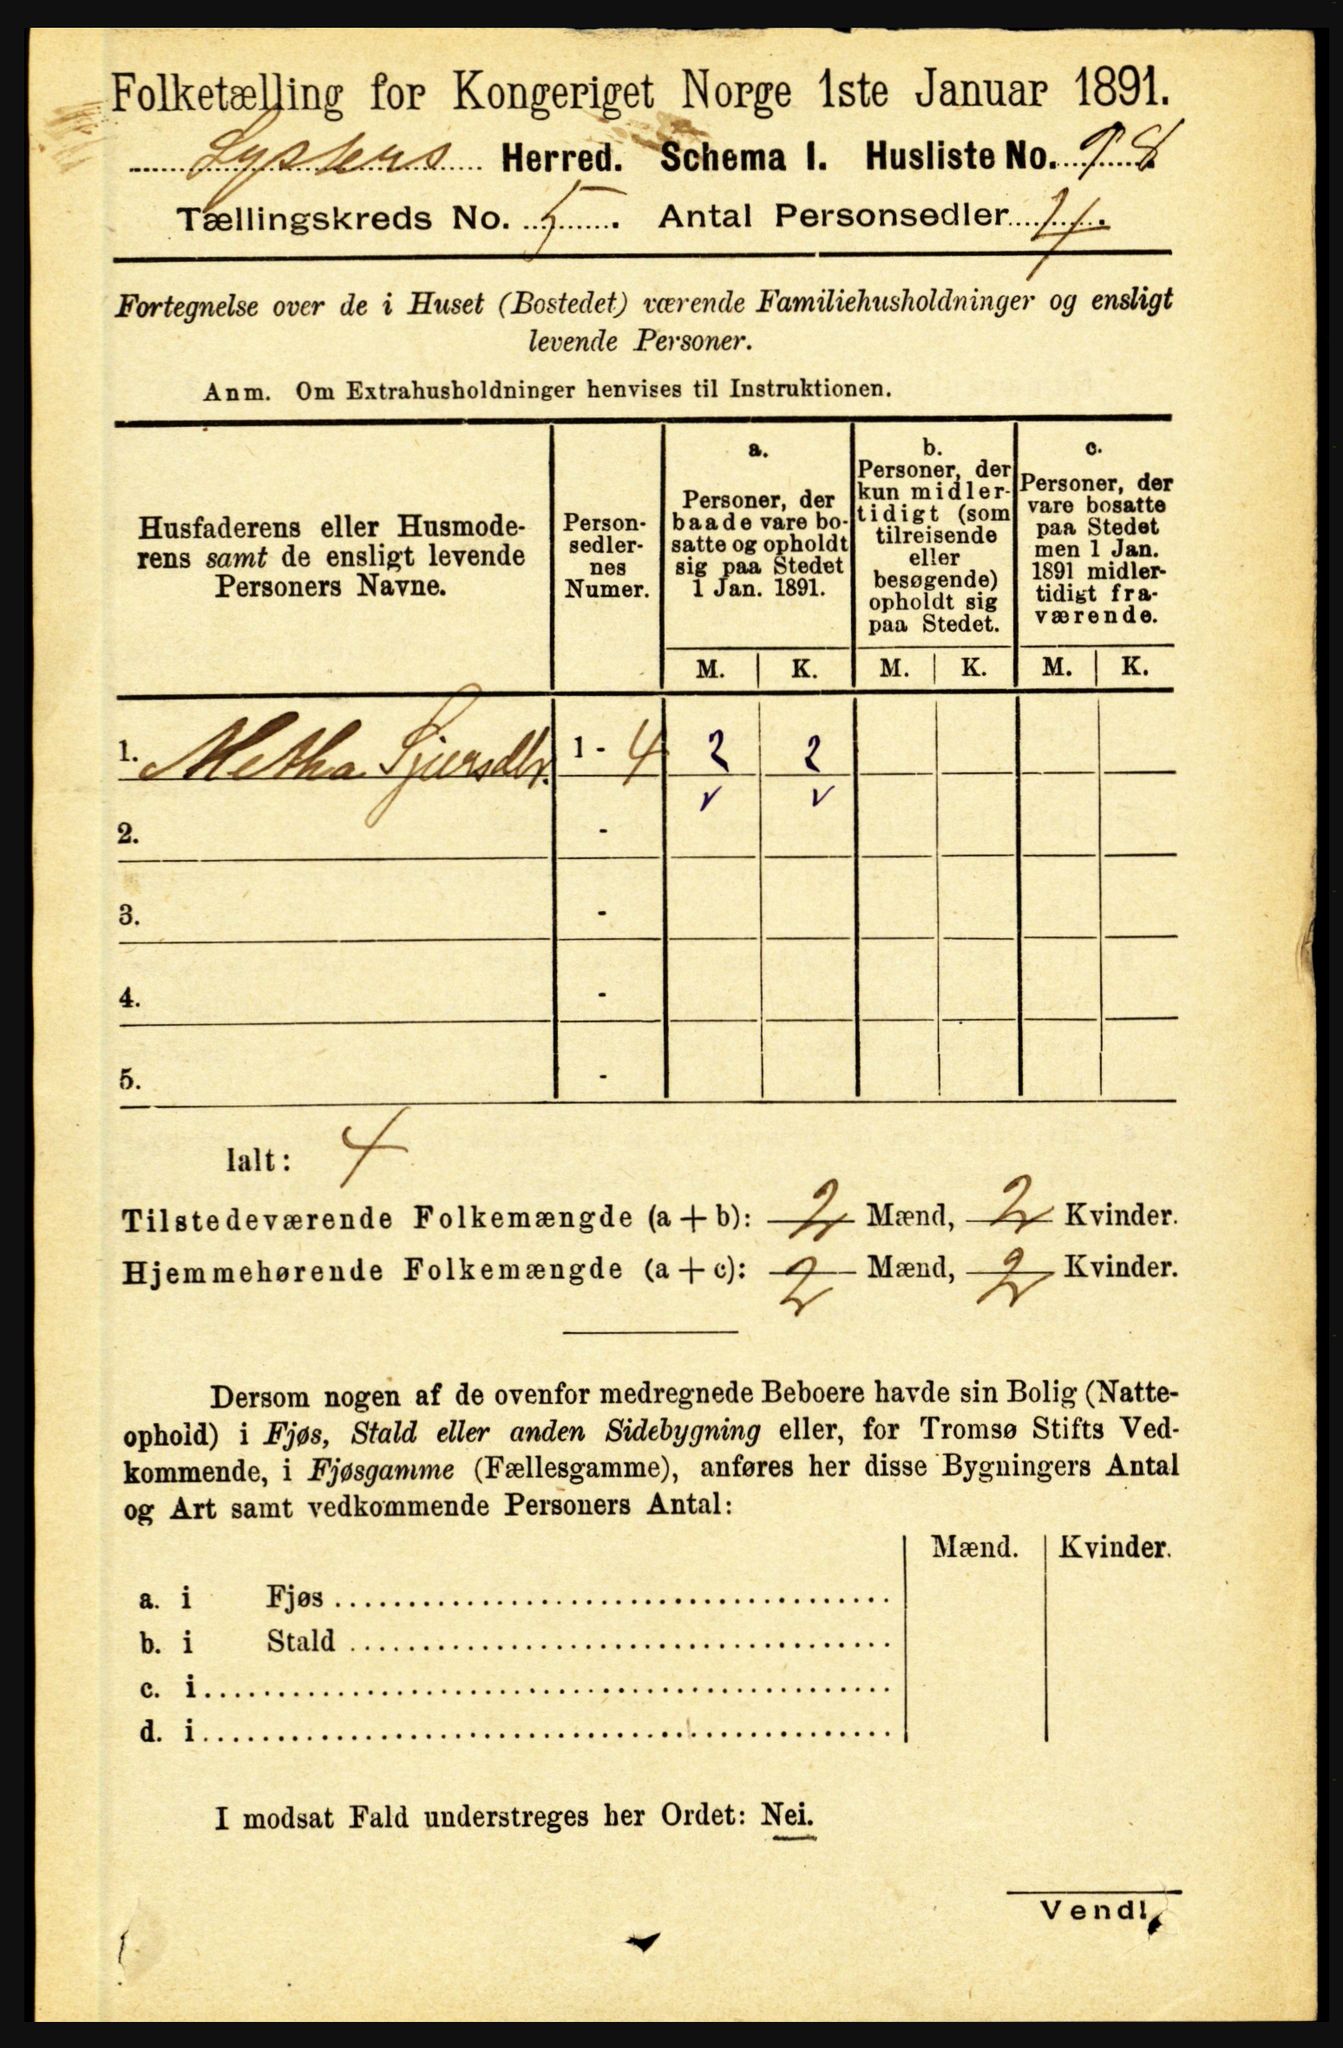 Folketælling for Kongeriget Norge 1ste Januar 1891.
Lysters Herred. Schema I. Husliste No. 98
Tællingskreds No. 5. Antal Personsedler 4.
Fortegnelse over de i Huset (Bostedet) værende Familiehusholdninger og ensligt
levende Personer.
Anm. Om Extrahusholdninger henvises til Instruktionen.
Husfaderens eller Husmode-
rens samt de ensligt levende
Personers Navne.
Person-
sedler-
nes
Numer.
a.
Personer, der
baade vare bo-
satte og opholdt
sig paa Stedet
1 Jan. 1891.
b.
Personer, der
kun midler-
tidigt (som
tilreisende
eller
besøgende)
opholdt sig
paa Stedet.
c.
Personer, der
vare bosatte
paa Stedet
men 1 Jan.
1891 midler-
tidigt fra-
værende.
M. K. M. K. M. K.
1. Metha Sjursdtr. 1 - 4 2 2
v v
2. -
3. -
4. -
5. -
Ialt: 4
Tilstedeværende Folkemængde (a + b): 2 Mænd, 2 Kvinder.
Hjemmehørende Folkemængde (a + c): 2 Mænd, 2 Kvinder.
Dersom nogen af de ovenfor medregnede Beboere havde sin Bolig (Natte-
ophold) i Fjøs, Stald eller anden Sidebygning eller, for Tromsø Stifts Ved-
kommende, i Fjøsgamme (Fællesgamme), anføres her disse Bygningers Antal
og Art samt vedkommende Personers Antal:
Mænd. Kvinder.
a. i Fjøs
b. i Stald
c. i
d. i
I modsat Fald understreges her Ordet: Nei.
Vend!